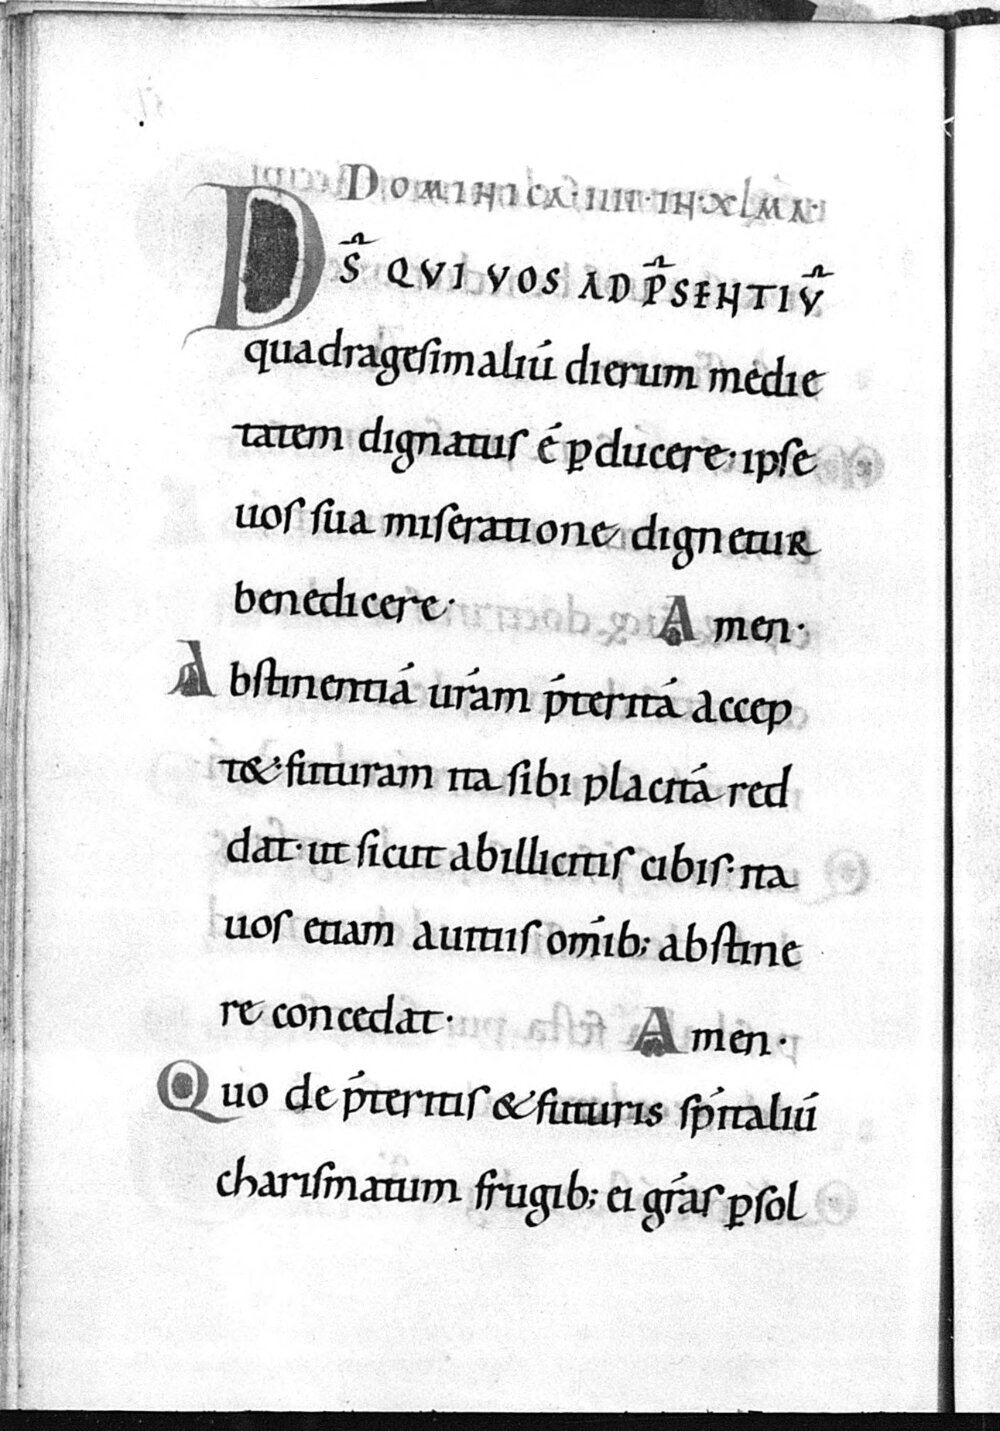 DOMINICA·IIII·IN·XLMA·
DS̄ QVI VOS AD P̄SENTIV̄
quadragesimaliū dierum medie
tatem dignatus ē ꝑducere· ipse
uos sua miseratione dignetur
benedicere· Amen·
Abstinentiā ur̄am p̄teritā accep
t&futuram ita sibi placitā red
dat· ut sicut abillicitis cibis· ita
uos etiam auitiis om̄ib; abstine
re concedat· Amen·
Quo de p̄teritis &futuris sp̄italiū
charismatum frugib; ei gr̄as ꝑsol